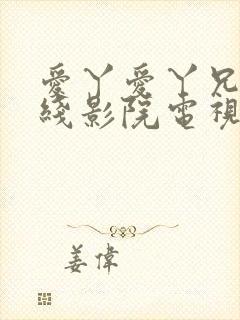 愛丫愛丫兄
綫影院電視
姜偉